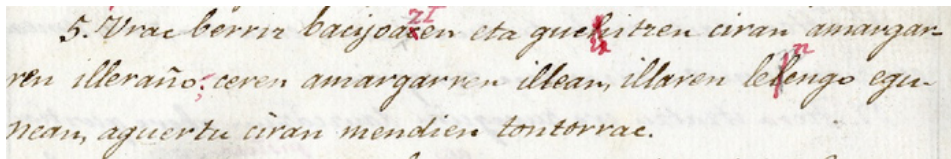 5. Vrac berriz bacijoazen eta guchitzen ciran amargar-
ren illeraño; ceren amargarren illean, illaren lenengo egu-
nean, aguertu ciran mendien tontorrac.